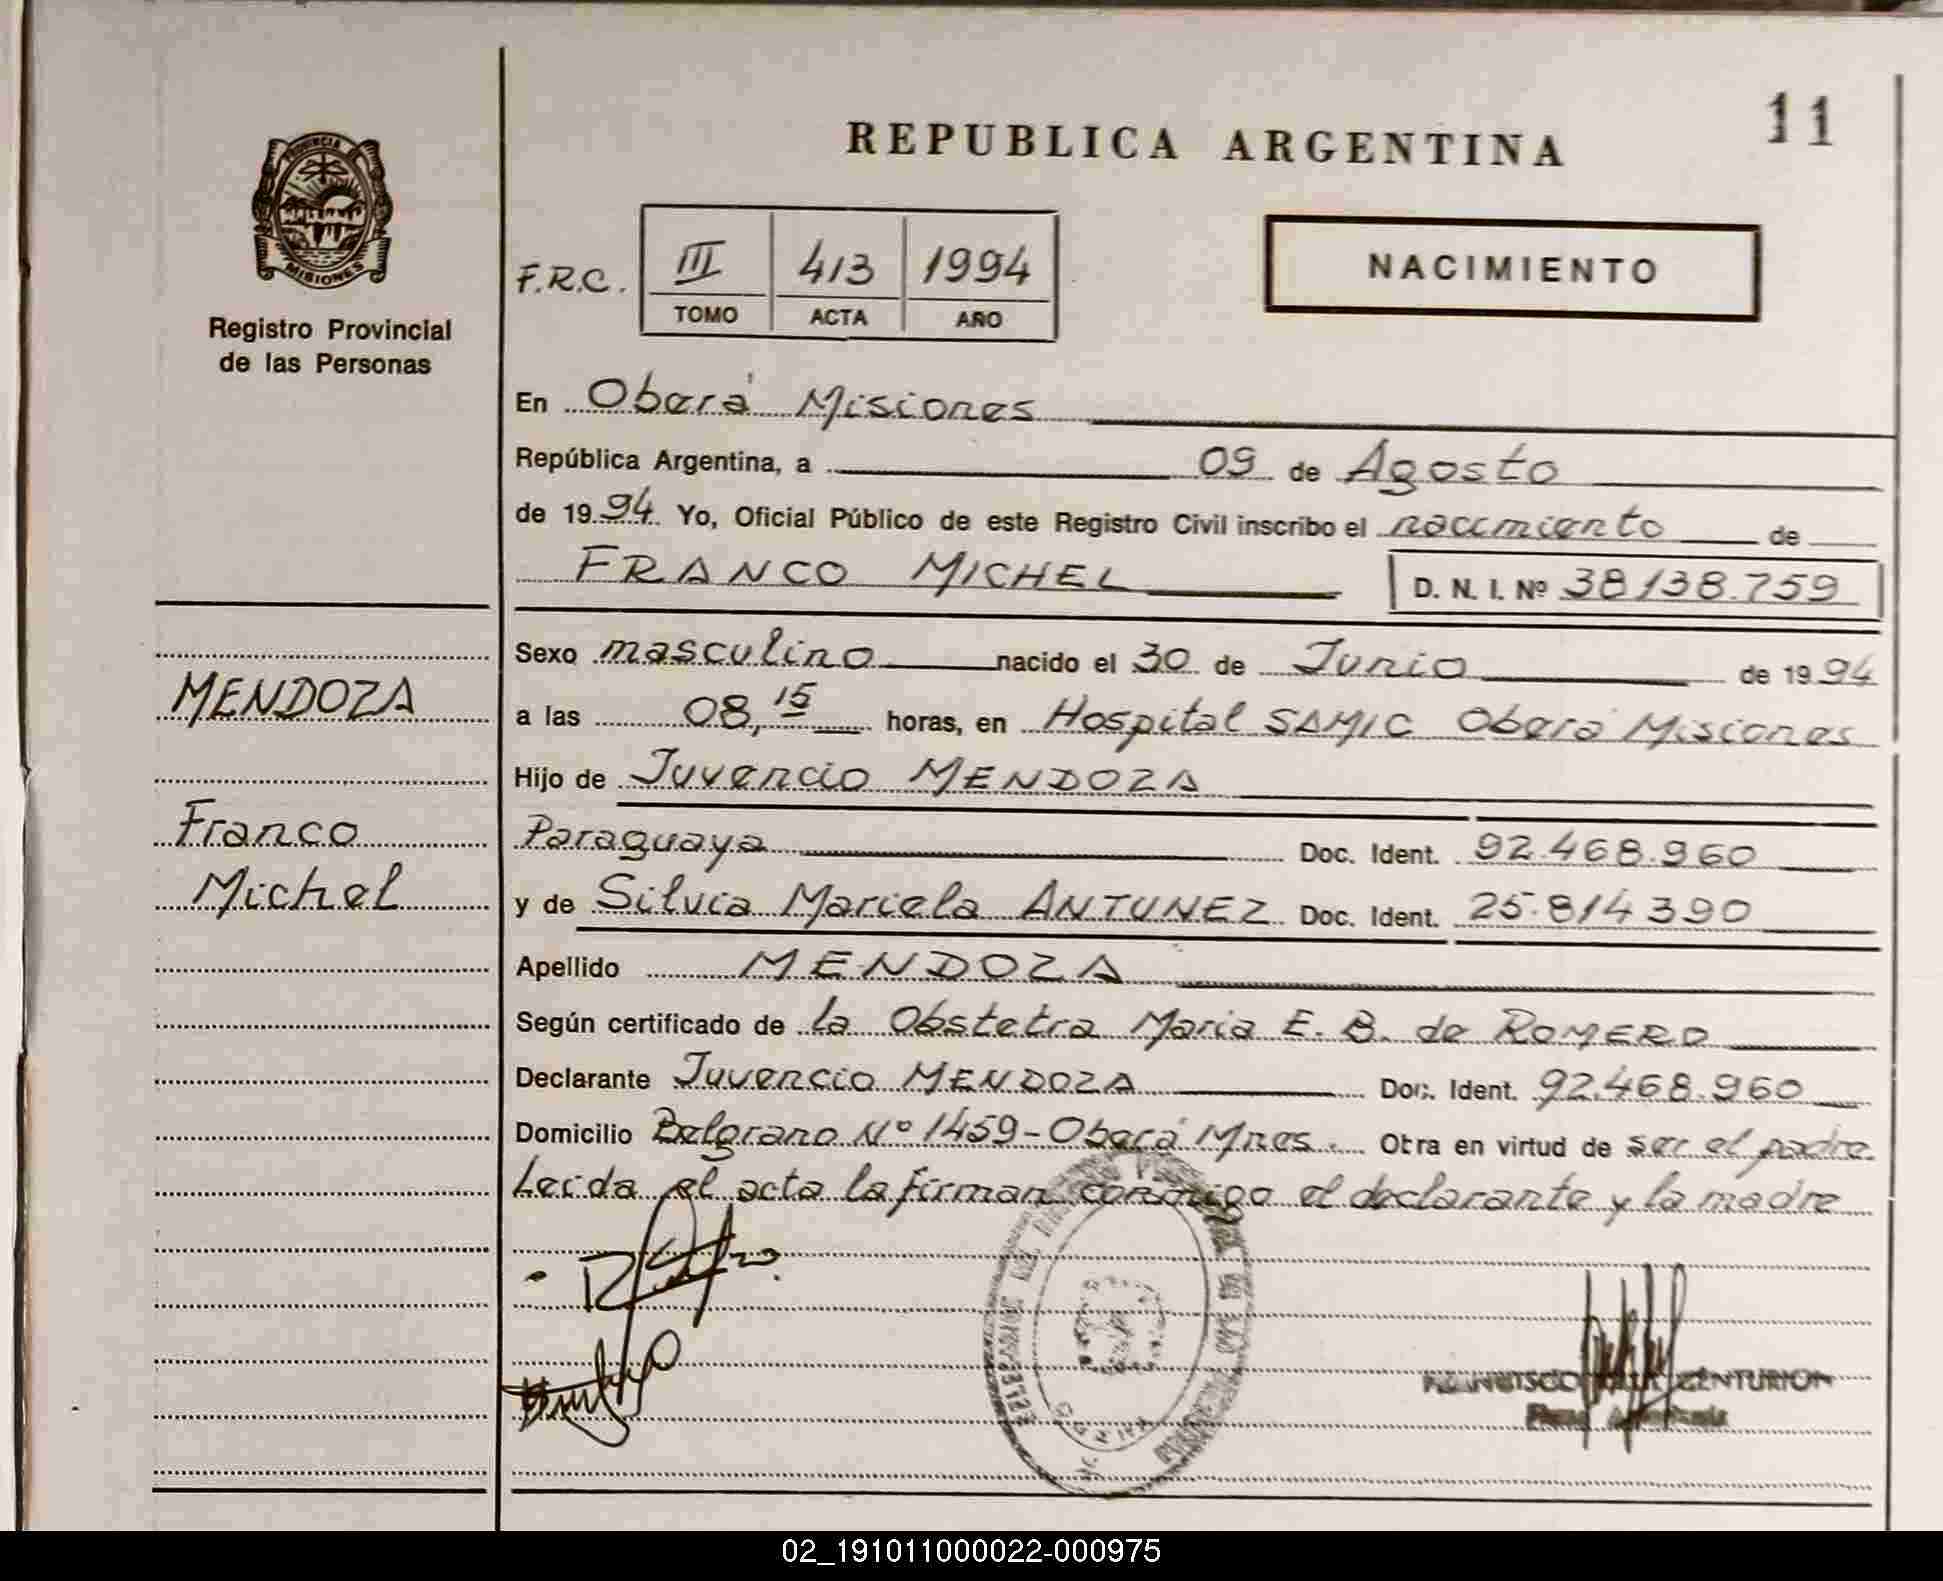 REPUBLICA ARGENTINA
11
PROVINCIA DE
MISIONES
Registro Provincial
de las Personas
F.R.C.
III 413 1994
TOMO ACTA AÑO
NACIMIENTO
En Oberá Misiones
República Argentina, a 09 de Agosto
de 1994 Yo, Oficial Público de este Registro Civil inscribo el nacimiento de
FRANCO MICHEL D. N. I. Nº 38138.759
Sexo masculino nacido el 30 de Junio de 1994
a las 08,15 horas, en Hospital SAMIC Oberá Misiones
Hijo de Juvencio MENDOZA
Paraguaya Doc. Ident. 92.468.960
y de Silvia Mariela ANTUNEZ Doc. Ident. 25.814390
Apellido MENDOZA
Según certificado de la Obstetra Maria E. B. de ROMERO
Declarante Juvencio MENDOZA Doc. Ident. 92.468.960
Domicilio Belgrano Nº 1459-Oberá Mnes. Obra en virtud de ser el padre
Leida el acta la firman conmigo el declarante y la madre
MENDOZA
Franco
Michel
CENTURION
02_191011000022-000975